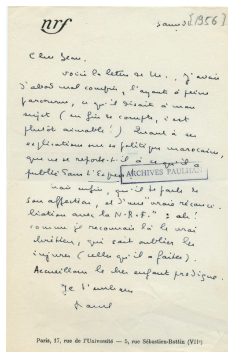 nrf
samedi [1956]
Cher Jean.
Voici la lettre de M... J'avais
d'abord mal compris, l'ayant à peine
parcourue, ce qu'il disait à mon
sujet (en fin de compte, c'est
plutôt aimable !) Quant à ses
explications sur sa politique marocaine,
que ne se reporte-t-il à ce qu'il a
publié dans l'Express
ARCHIVES PAULHAN
Mais enfin, qu'il te parle de
son affection, et d'une "vraie réconci-
liation avec la N.R.F." : ah !
comme je reconnais là le vrai
chrétien, qui sait oublier les
injures (celles qu'il a faites).
Accueillons le cher enfant prodigue.
Je t'embrasse
Paris, 17, rue de l'Université — 5, rue Sébastien-Bottin (VIIe)